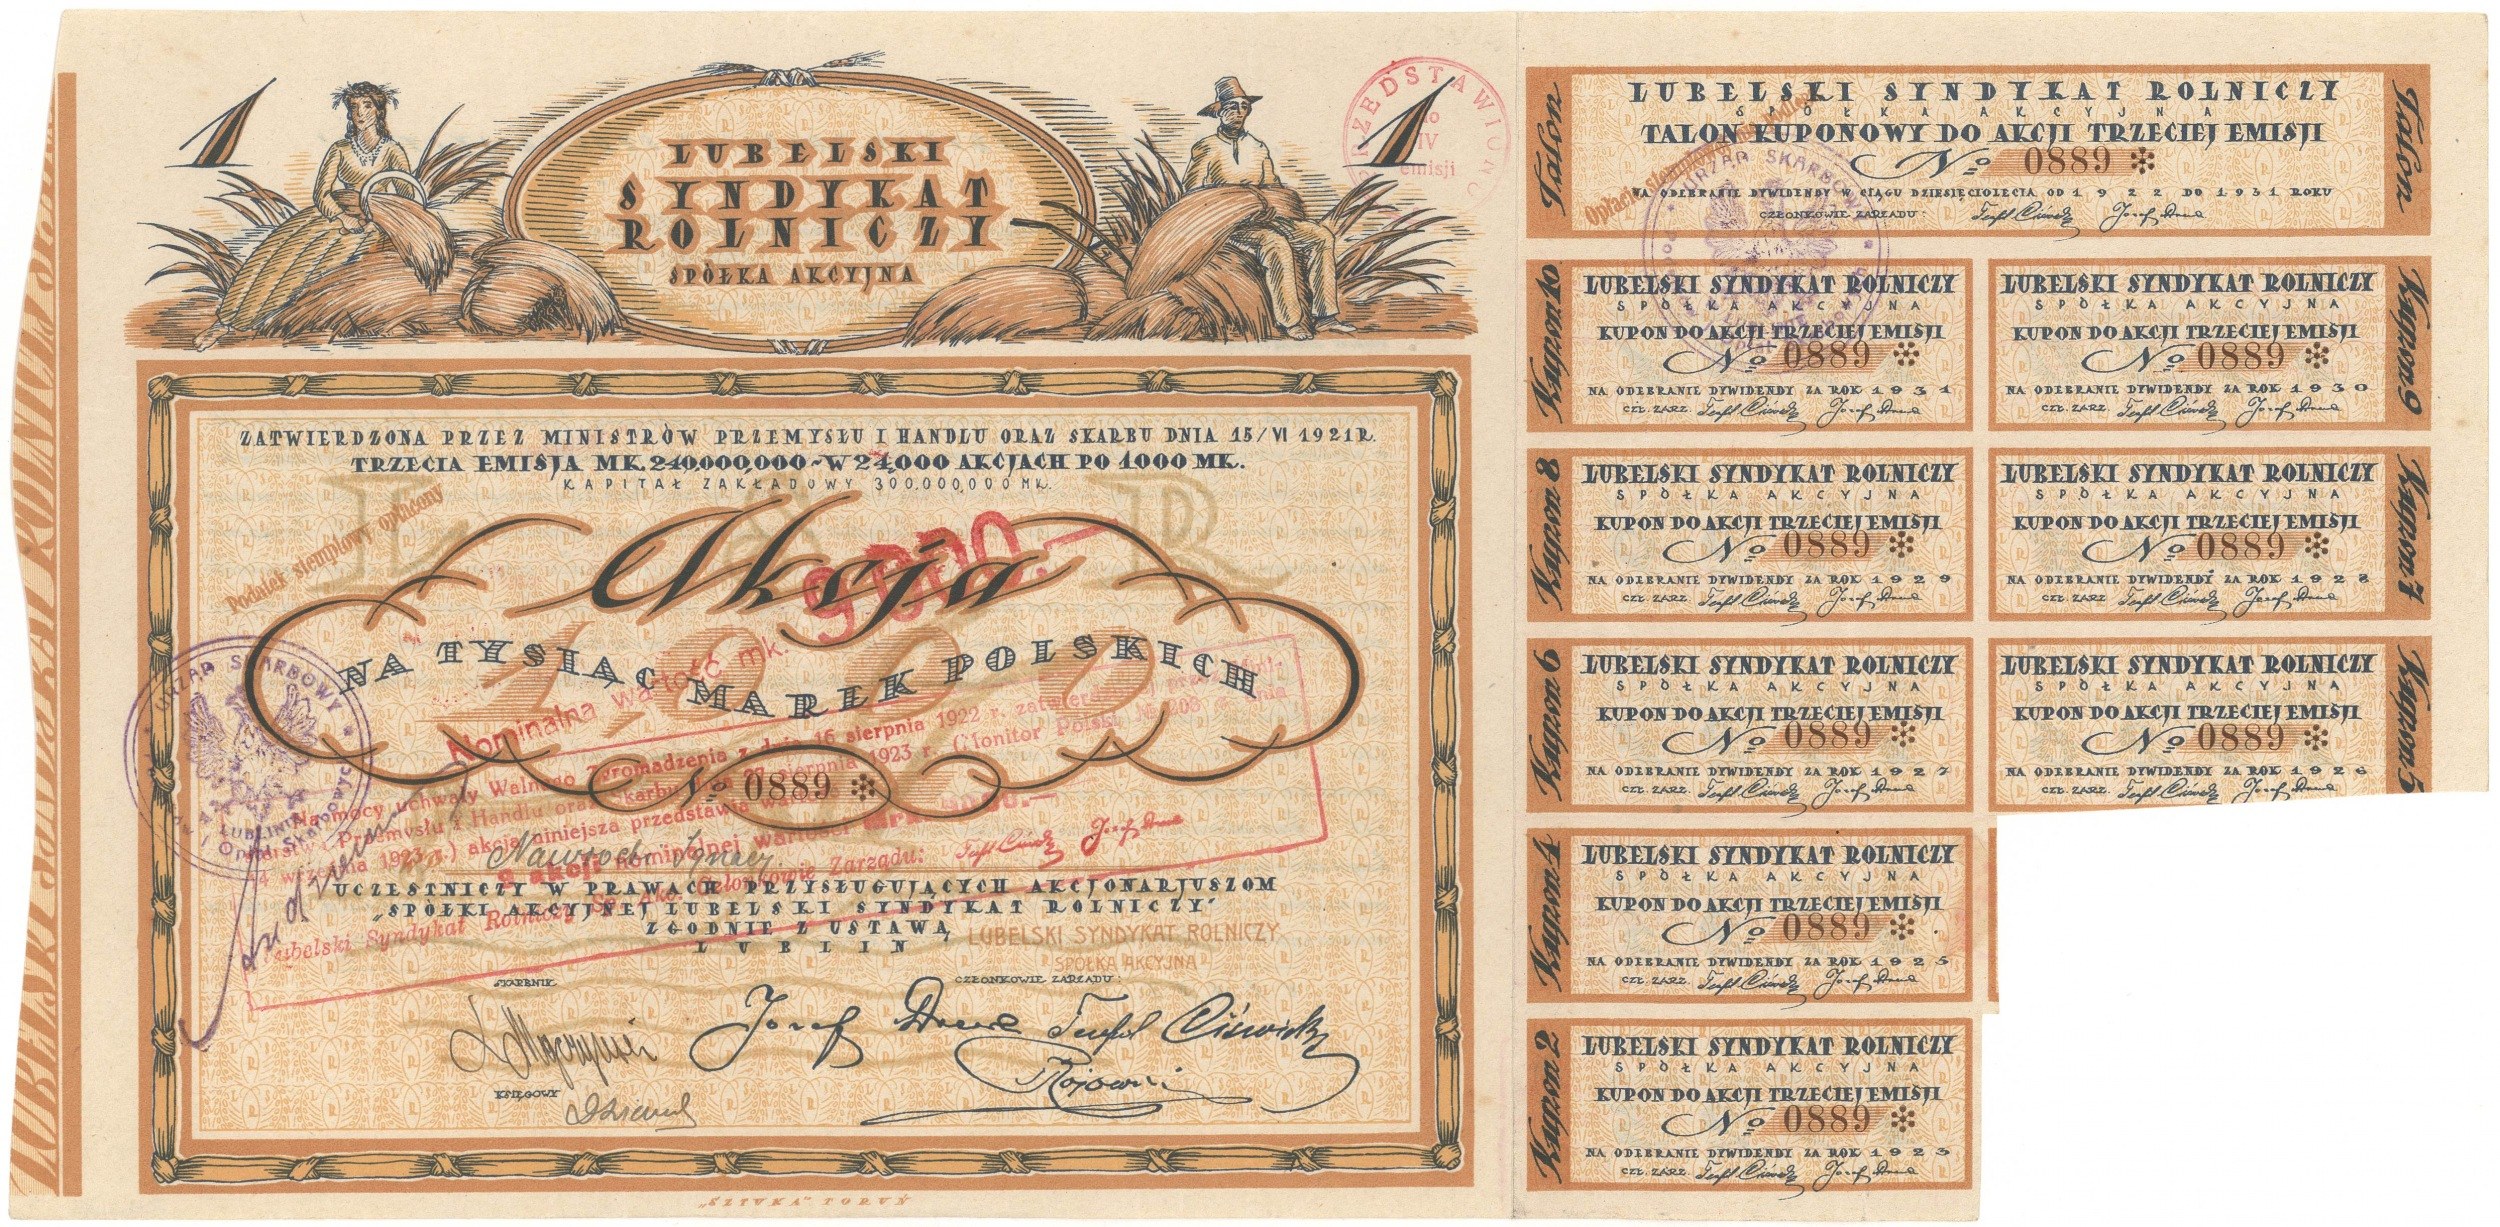 LUBELSKI
SYNDYKAT
ROLNICZY
SPÓŁKA AKCYJNA
PRZEDSTAWIONO
do
IV
emisji
ZATWIERDZONA PRZEZ MINISTRÓW PRZEMYSŁU I HANDLU ORAZ SKARBU DNIA 15/VI 1921 R.
TRZECIA EMISJA MK. 240,000,000 ~ W 24,000 AKCJACH PO 1000 MK.
KAPITAŁ ZAKŁADOWY 300.000,000 MK.
Podatek stemplowy opłacony
L S R
Akcja
9.000.—
1000
NA TYSIĄC MAREK POLSKICH
Nominalna wartość mk.
№ 0889
Na mocy uchwały Walnego Zgromadzenia z dnia 16 sierpnia 1922 r. zatwierdzonej przez Mini-
sterstwa Przemysłu i Handlu oraz Skarbu sierpnia 1923 r. (Monitor Polski № 208 z dnia
14 września 1923 r.) akcja niniejsza przedstawia
9 akcji nominalnej wartości
Lubelski Syndykat Rolniczy Sp. Akc. Członkowie Zarządu:
URZĄD SKARBOWY
Nawrocki Ignacy
UCZESTNICZY W PRAWACH PRZYSŁUGUJĄCYCH AKCJONARJUSZOM
"SPÓŁKI AKCYJNEJ LUBELSKI SYNDYKAT ROLNICZY"
ZGODNIE Z USTAWĄ
LUBLIN
LUBELSKI SYNDYKAT ROLNICZY
SPÓŁKA AKCYJNA
SKARBNIK
CZŁONKOWIE ZARZĄDU:
KSIĘGOWY
"SZTUKA" TORUŃ
LUBELSKI SYNDYKAT ROLNICZY
Talon
LUBELSKI SYNDYKAT ROLNICZY
SPÓŁKA AKCYJNA
TALON KUPONOWY DO AKCJI TRZECIEJ EMISJI
№ 0889
NA ODEBRANIE DYWIDENDY W CIĄGU DZIESIĘCIOLECIA OD 1922 DO 1931 ROKU
CZŁONKOWIE ZARZĄDU:
Talon
URZĄD SKARBOWY
Kupon 10
LUBELSKI SYNDYKAT ROLNICZY
SPÓŁKA AKCYJNA
KUPON DO AKCJI TRZECIEJ EMISJI
№ 0889
NA ODEBRANIE DYWIDENDY ZA ROK 1931
CZŁ. ZARZ.
LUBELSKI SYNDYKAT ROLNICZY
SPÓŁKA AKCYJNA
KUPON DO AKCJI TRZECIEJ EMISJI
№ 0889
NA ODEBRANIE DYWIDENDY ZA ROK 1930
CZŁ. ZARZ.
Kupon 9
Kupon 8
LUBELSKI SYNDYKAT ROLNICZY
SPÓŁKA AKCYJNA
KUPON DO AKCJI TRZECIEJ EMISJI
№ 0889
NA ODEBRANIE DYWIDENDY ZA ROK 1929
CZŁ. ZARZ.
LUBELSKI SYNDYKAT ROLNICZY
SPÓŁKA AKCYJNA
KUPON DO AKCJI TRZECIEJ EMISJI
№ 0889
NA ODEBRANIE DYWIDENDY ZA ROK 1928
CZŁ. ZARZ.
Kupon 7
Kupon 6
LUBELSKI SYNDYKAT ROLNICZY
SPÓŁKA AKCYJNA
KUPON DO AKCJI TRZECIEJ EMISJI
№ 0889
NA ODEBRANIE DYWIDENDY ZA ROK 1927
CZŁ. ZARZ.
LUBELSKI SYNDYKAT ROLNICZY
SPÓŁKA AKCYJNA
KUPON DO AKCJI TRZECIEJ EMISJI
№ 0889
NA ODEBRANIE DYWIDENDY ZA ROK 1926
CZŁ. ZARZ.
Kupon 5
Kupon 4
LUBELSKI SYNDYKAT ROLNICZY
SPÓŁKA AKCYJNA
KUPON DO AKCJI TRZECIEJ EMISJI
№ 0889
NA ODEBRANIE DYWIDENDY ZA ROK 1925
CZŁ. ZARZ.
Kupon 2
LUBELSKI SYNDYKAT ROLNICZY
SPÓŁKA AKCYJNA
KUPON DO AKCJI TRZECIEJ EMISJI
№ 0889
NA ODEBRANIE DYWIDENDY ZA ROK 1923
CZŁ. ZARZ.